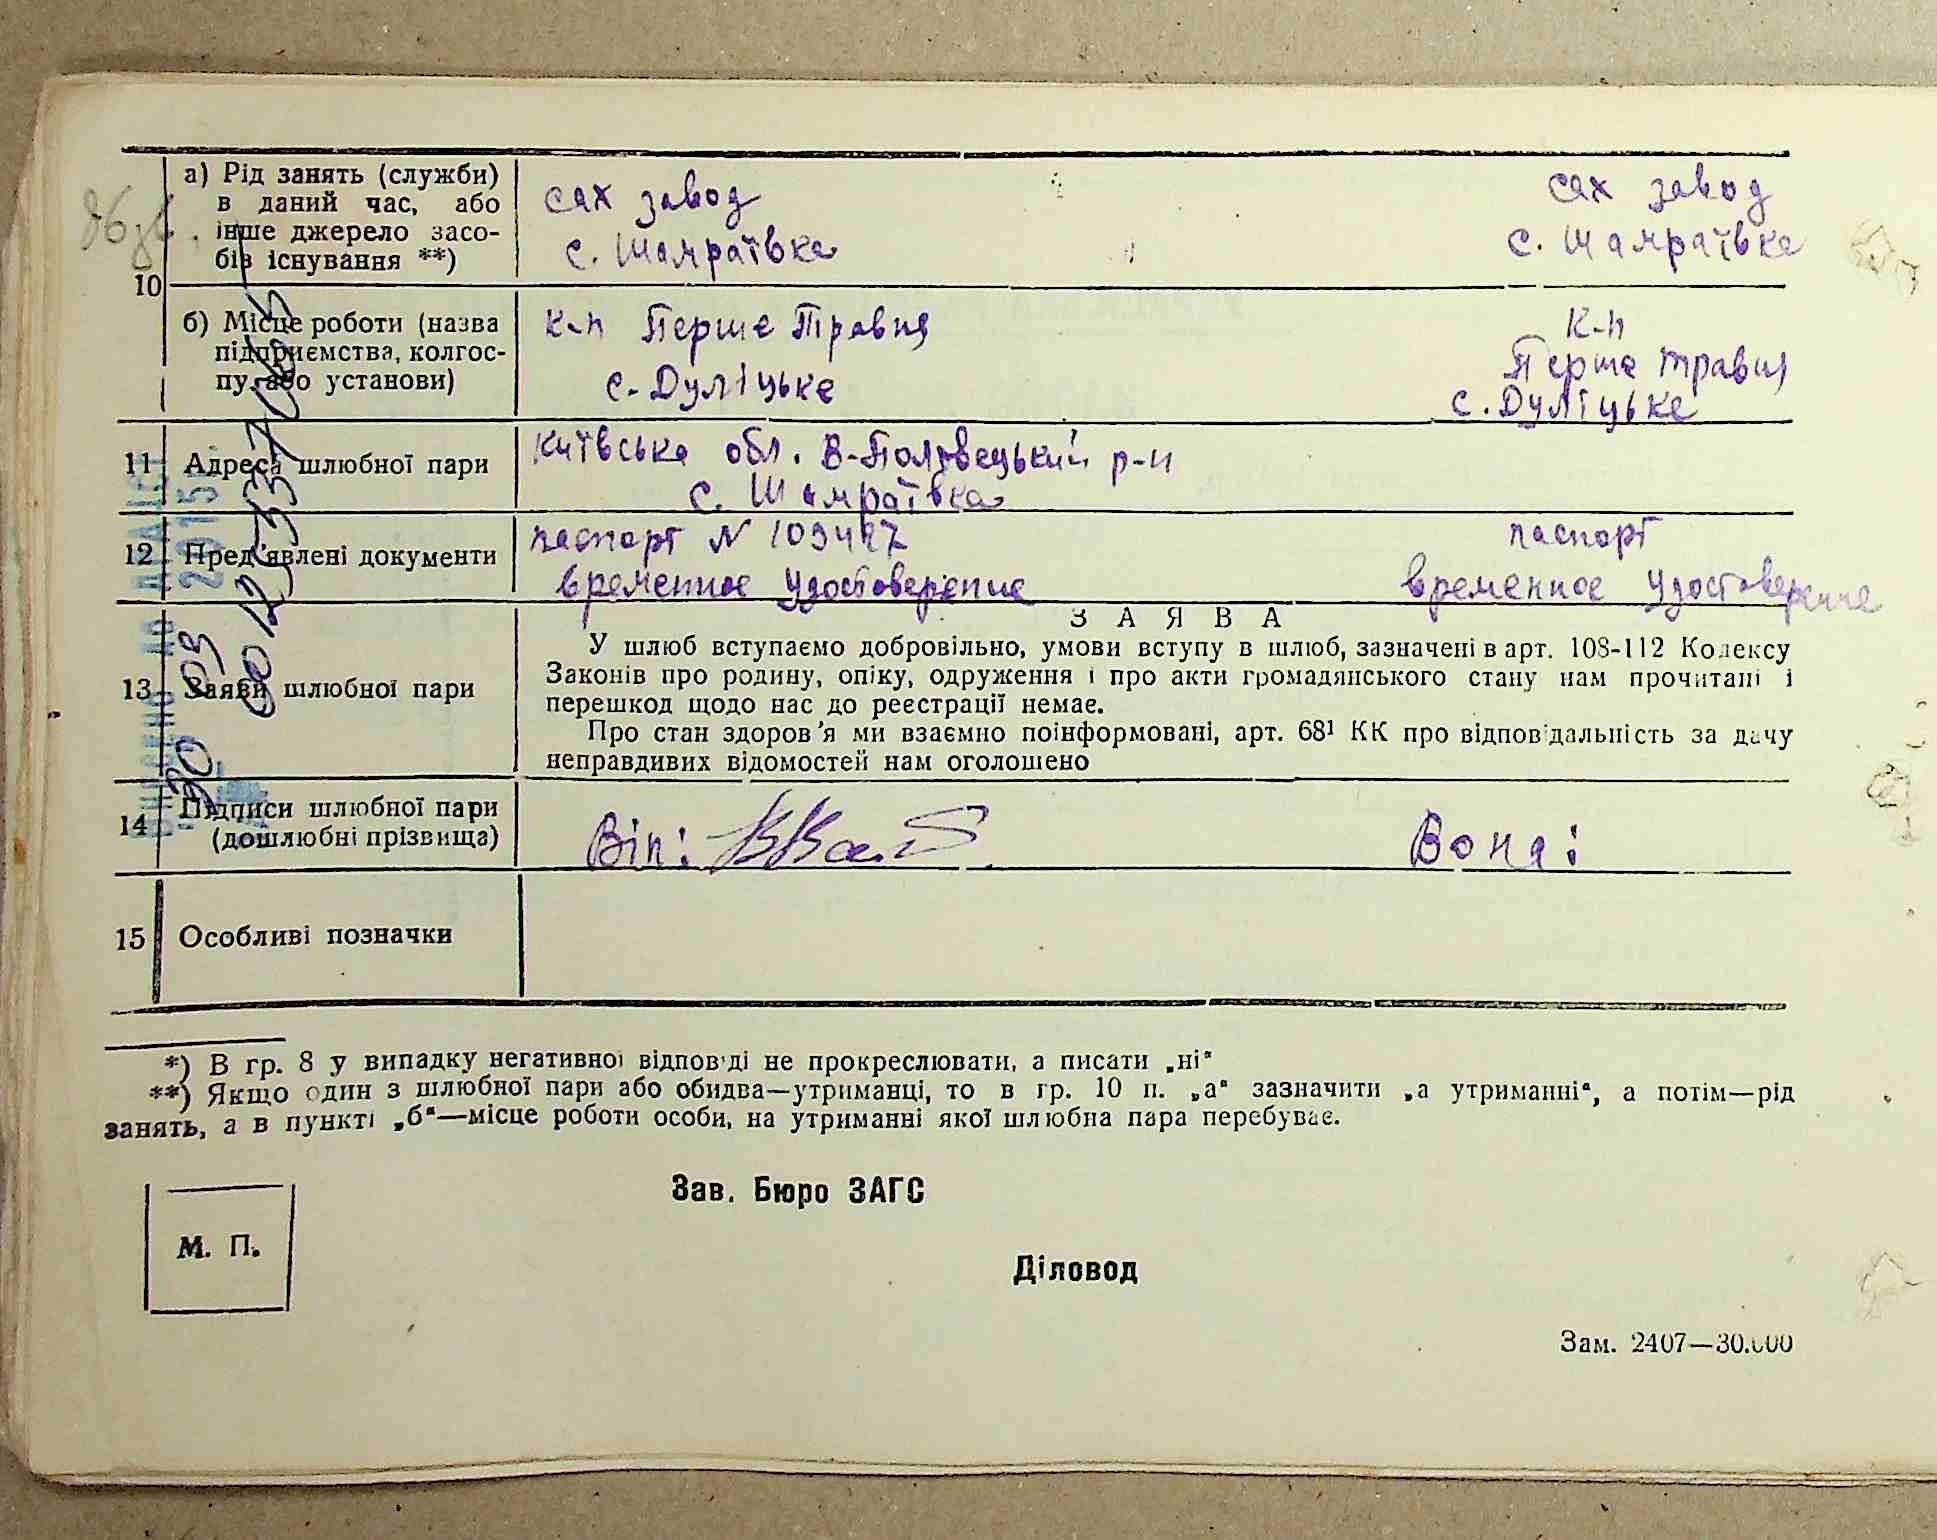 а) Рід занять (служби)
в даний час, або
інше джерело засо-
бів існування **)
сах завод
с. Шамраївка
сах завод
с. Шамраївка
10
б) Місце роботи (назва
підприємства, колгос-
пу або установи)
к-п Перше Травня
с. Дуліцьке
к-п
Перше травня
с. Дуліцьке
11 Адреса шлюбної пари
Київська обл. В-Половецький р-н
с. Шамраївка
12 Пред'явлені документи
паспорт N
временное удостоверение
паспорт
временное удостоверение
13 Заяви шлюбної пари
ЗАЯВА
У шлюб вступаємо добровільно, умови вступу в шлюб, зазначені в арт. 108-112 Кодексу
Законів про родину, опіку, одруження і про акти громадянського стану нам прочитані і
перешкод щодо нас до реєстрації немає.
Про стан здоров'я ми взаємно поінформовані, арт. 68¹ КК про відповідальність за дачу
неправдивих відомостей нам оголошено
14 Підписи шлюбної пари
(дошлюбні прізвища)
Він:
Вона:
15 Особливі позначки
*) В гр. 8 у випадку негативної відповіді не прокреслювати, а писати „ні"
**) Якщо один з шлюбної пари або обидва—утриманці, то в гр. 10 п. „а" зазначити „а утриманні", а потім—рід
занять, а в пункті „б"—місце роботи особи, на утриманні якої шлюбна пара перебуває.
Зав. Бюро ЗАГС
М. П.
Діловод
Зам. 2407—30.000